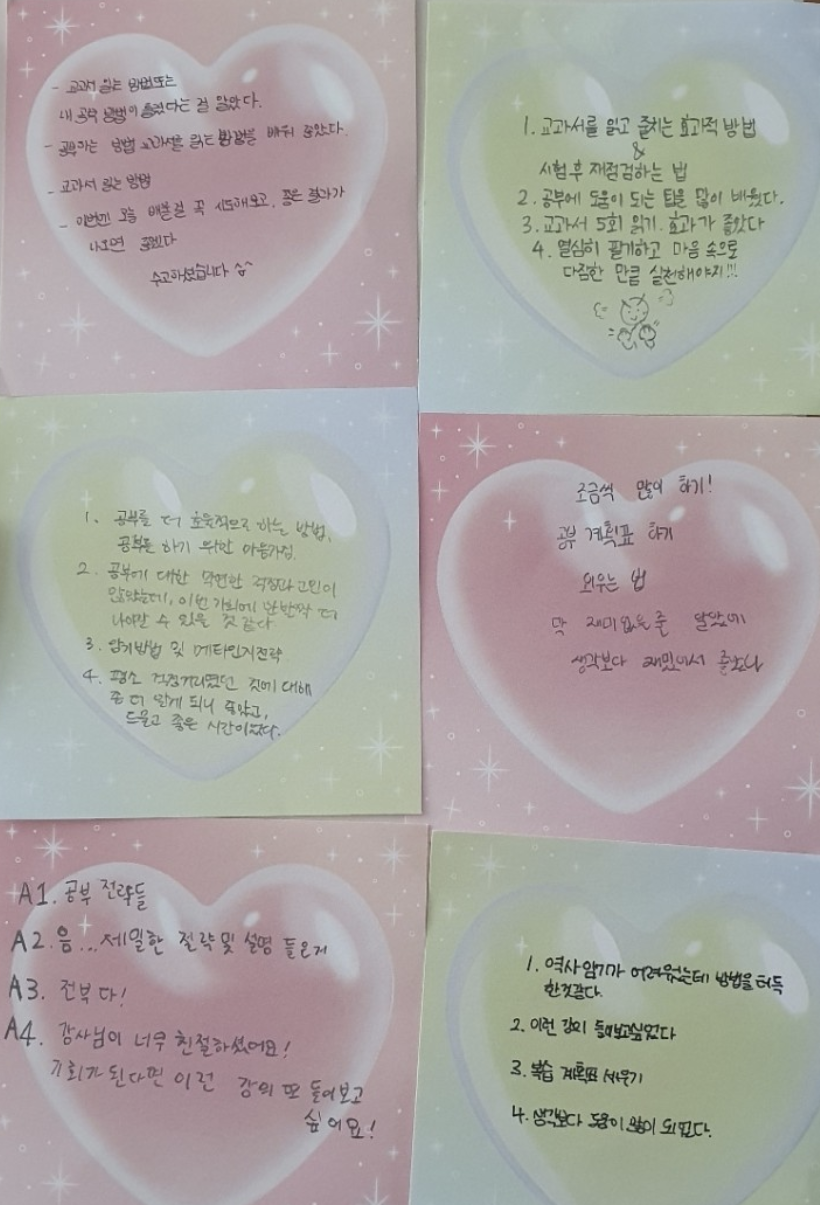 - 교과서 읽는 방법또는
내 공부 방법이 틀렸다는 걸 알았다.
- 공부하는 방법 교과서를 읽는 방법을 배워 좋았다.
- 교과서 읽는 방법
- 이번엔 오늘 배운걸 꼭 시도해보고, 좋은 결과가
나오면 좋겠다
수고하셨습니다 ^^
1. 교과서를 읽고 줄치는 효과적 방법
&
시험 후 재점검하는 법
2. 공부에 도움이 되는 팁을 많이 배웠다.
3. 교과서 5회 읽기. 효과가 좋았다
4. 열심히 필기하고 마음 속으로
다짐한 만큼 실천해야지!!!
1. 공부를 더 효율적으로 하는 방법,
공부를 하기 위한 마음가짐.
2. 공부에 대한 막연한 걱정과 고민이
많았는데, 이번 기회에 한 발짝 더
나아갈 수 있을 것 같다
3. 암기방법 및 메타인지전략
4. 평소 걱정거리였던 것에 대해
좀 더 알게 되니 좋았고,
드물고 좋은 시간이었다.
조금씩 많이 하기!
공부 계획표 하기
외우는 법
막 재미없을줄 알았는데
생각보다 재밌어서 좋았다
A1. 공부 전략들
A2. 음...제일한 전략 및 설명 들은게
A3. 전부 다!
A4. 강사님이 너무 친절하셨어요!
기회가 된다면 이런 강의 또 들어보고
싶어요!
1. 역사암기가 어려웠는데 방법을 터득
한것같다.
2. 이런 강의 들어보고싶었다
3. 복습 계획표 세우기
4. 생각보다 도움이 많이 되었다.